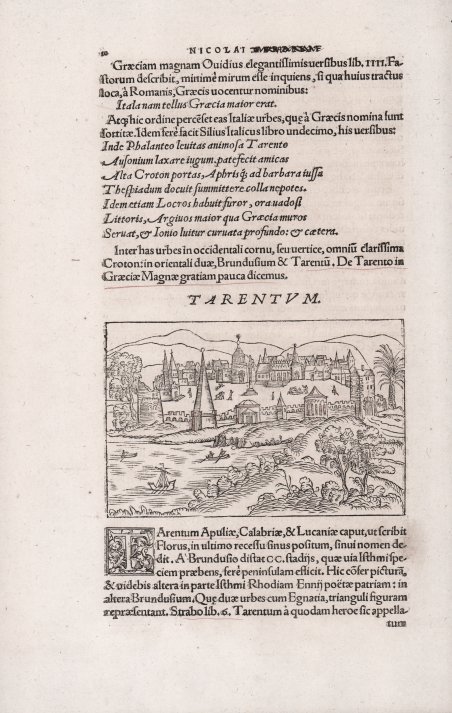 NICOLAI
Græciam magnam Ouidius elegantissimis versibus lib. IIII. Fa-
storum describit, minimè mirum esse inquiens, si qua huius tractus
loca, à Romanis, Græcis vocentur nominibus:
Itala nam tellus Græcia maior erat.
Atq; hic ordine percéset eas Italiæ urbes, quę à Græcis nomina sunt
sortitæ. Idem ferè facit Silius Italicus libro undecimo, his uersibus:
Inde Phalanteo leuitas animosa Tarento
Ausonium laxare iugum. patefecit amicas
Alta Croton portas, Aphrisq; ad barbara iussa
Thespiadum docuit summittere colla nepotes.
Idem etiam Locros habuit furor, ora uadosi
Littoris, Argiuos maior qua Græcia muros
Seruat, & Ionio luitur curuata profundo: & cætera.
Inter has urbes in occidentali cornu, seu vertice, omniũ clarissima
Croton: in orientali duæ, Brundusium & Tarentũ. De Tarento in
Græciæ Magnæ gratiam pauca dicemus.
TARENTVM.
TArentum Apuliæ, Calabriæ, & Lucaniæ caput, ut scribit
Florus, in ultimo recessu sinus positum, sinui nomen de-
dit. A' Brundusio distat CC. stadijs, quæ uia Isthmi spe-
ciem præbens, ferè peninsulam efficit. Hic cõfer picturã,
& uidebis altera in parte Isthmi Rhodiam Ennij poëtæ patriam: in
altera Brundusium. Quę duæ urbes cum Egnatia, trianguli figuram
repræsentant. Strabo lib. 6. Tarentum à quodam heroe sic appella-
tum